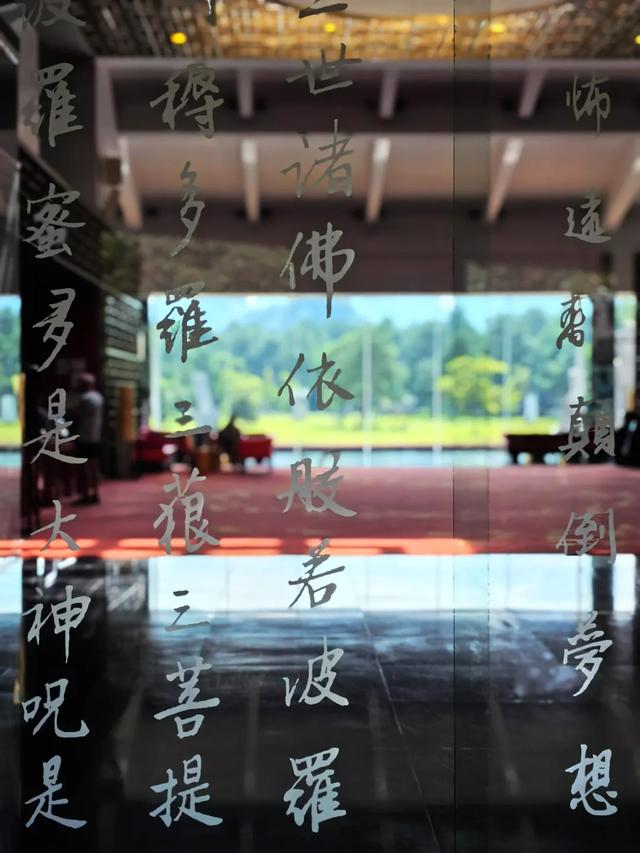 怖遠離顛倒夢想
三世諸佛依般若波羅
耨多羅三藐三菩提
波羅蜜多是大神呪是